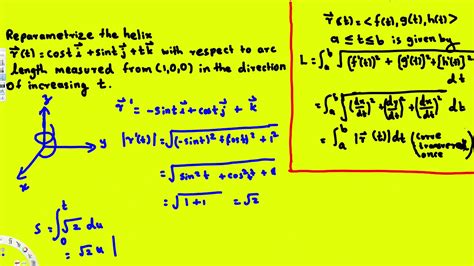 Reparametrize the helix
r⃗(t) = cost i⃗ + sint j⃗ + t k⃗ with respect to arc
length measured from (1,0,0) in the direction
of increasing t.
r⃗' = -sint i⃗ + cost j⃗ + k⃗
|r'(t)| = √((-sint)² + (cost)² + 1²
= √(sin²t + cos²t + 1
= √(1+1) = √2
z
y
x
S = ∫₀ᵗ √2 du
= √2 u |
r⃗(t) = <f(t), g(t), h(t)>
a ≤ t ≤ b is given by
L = ∫ₐᵇ √([f'(t)]² + [g'(t)]² + [h'(t)]²
dt
= ∫ₐᵇ √((dx/dt)² + (dy/dt)² + (dz/dt)² dt
= ∫ₐᵇ |r⃗'(t)| dt (curve
traversed
once